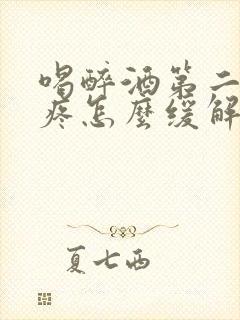 喝醉酒第二
疼怎麼缓解
夏七西